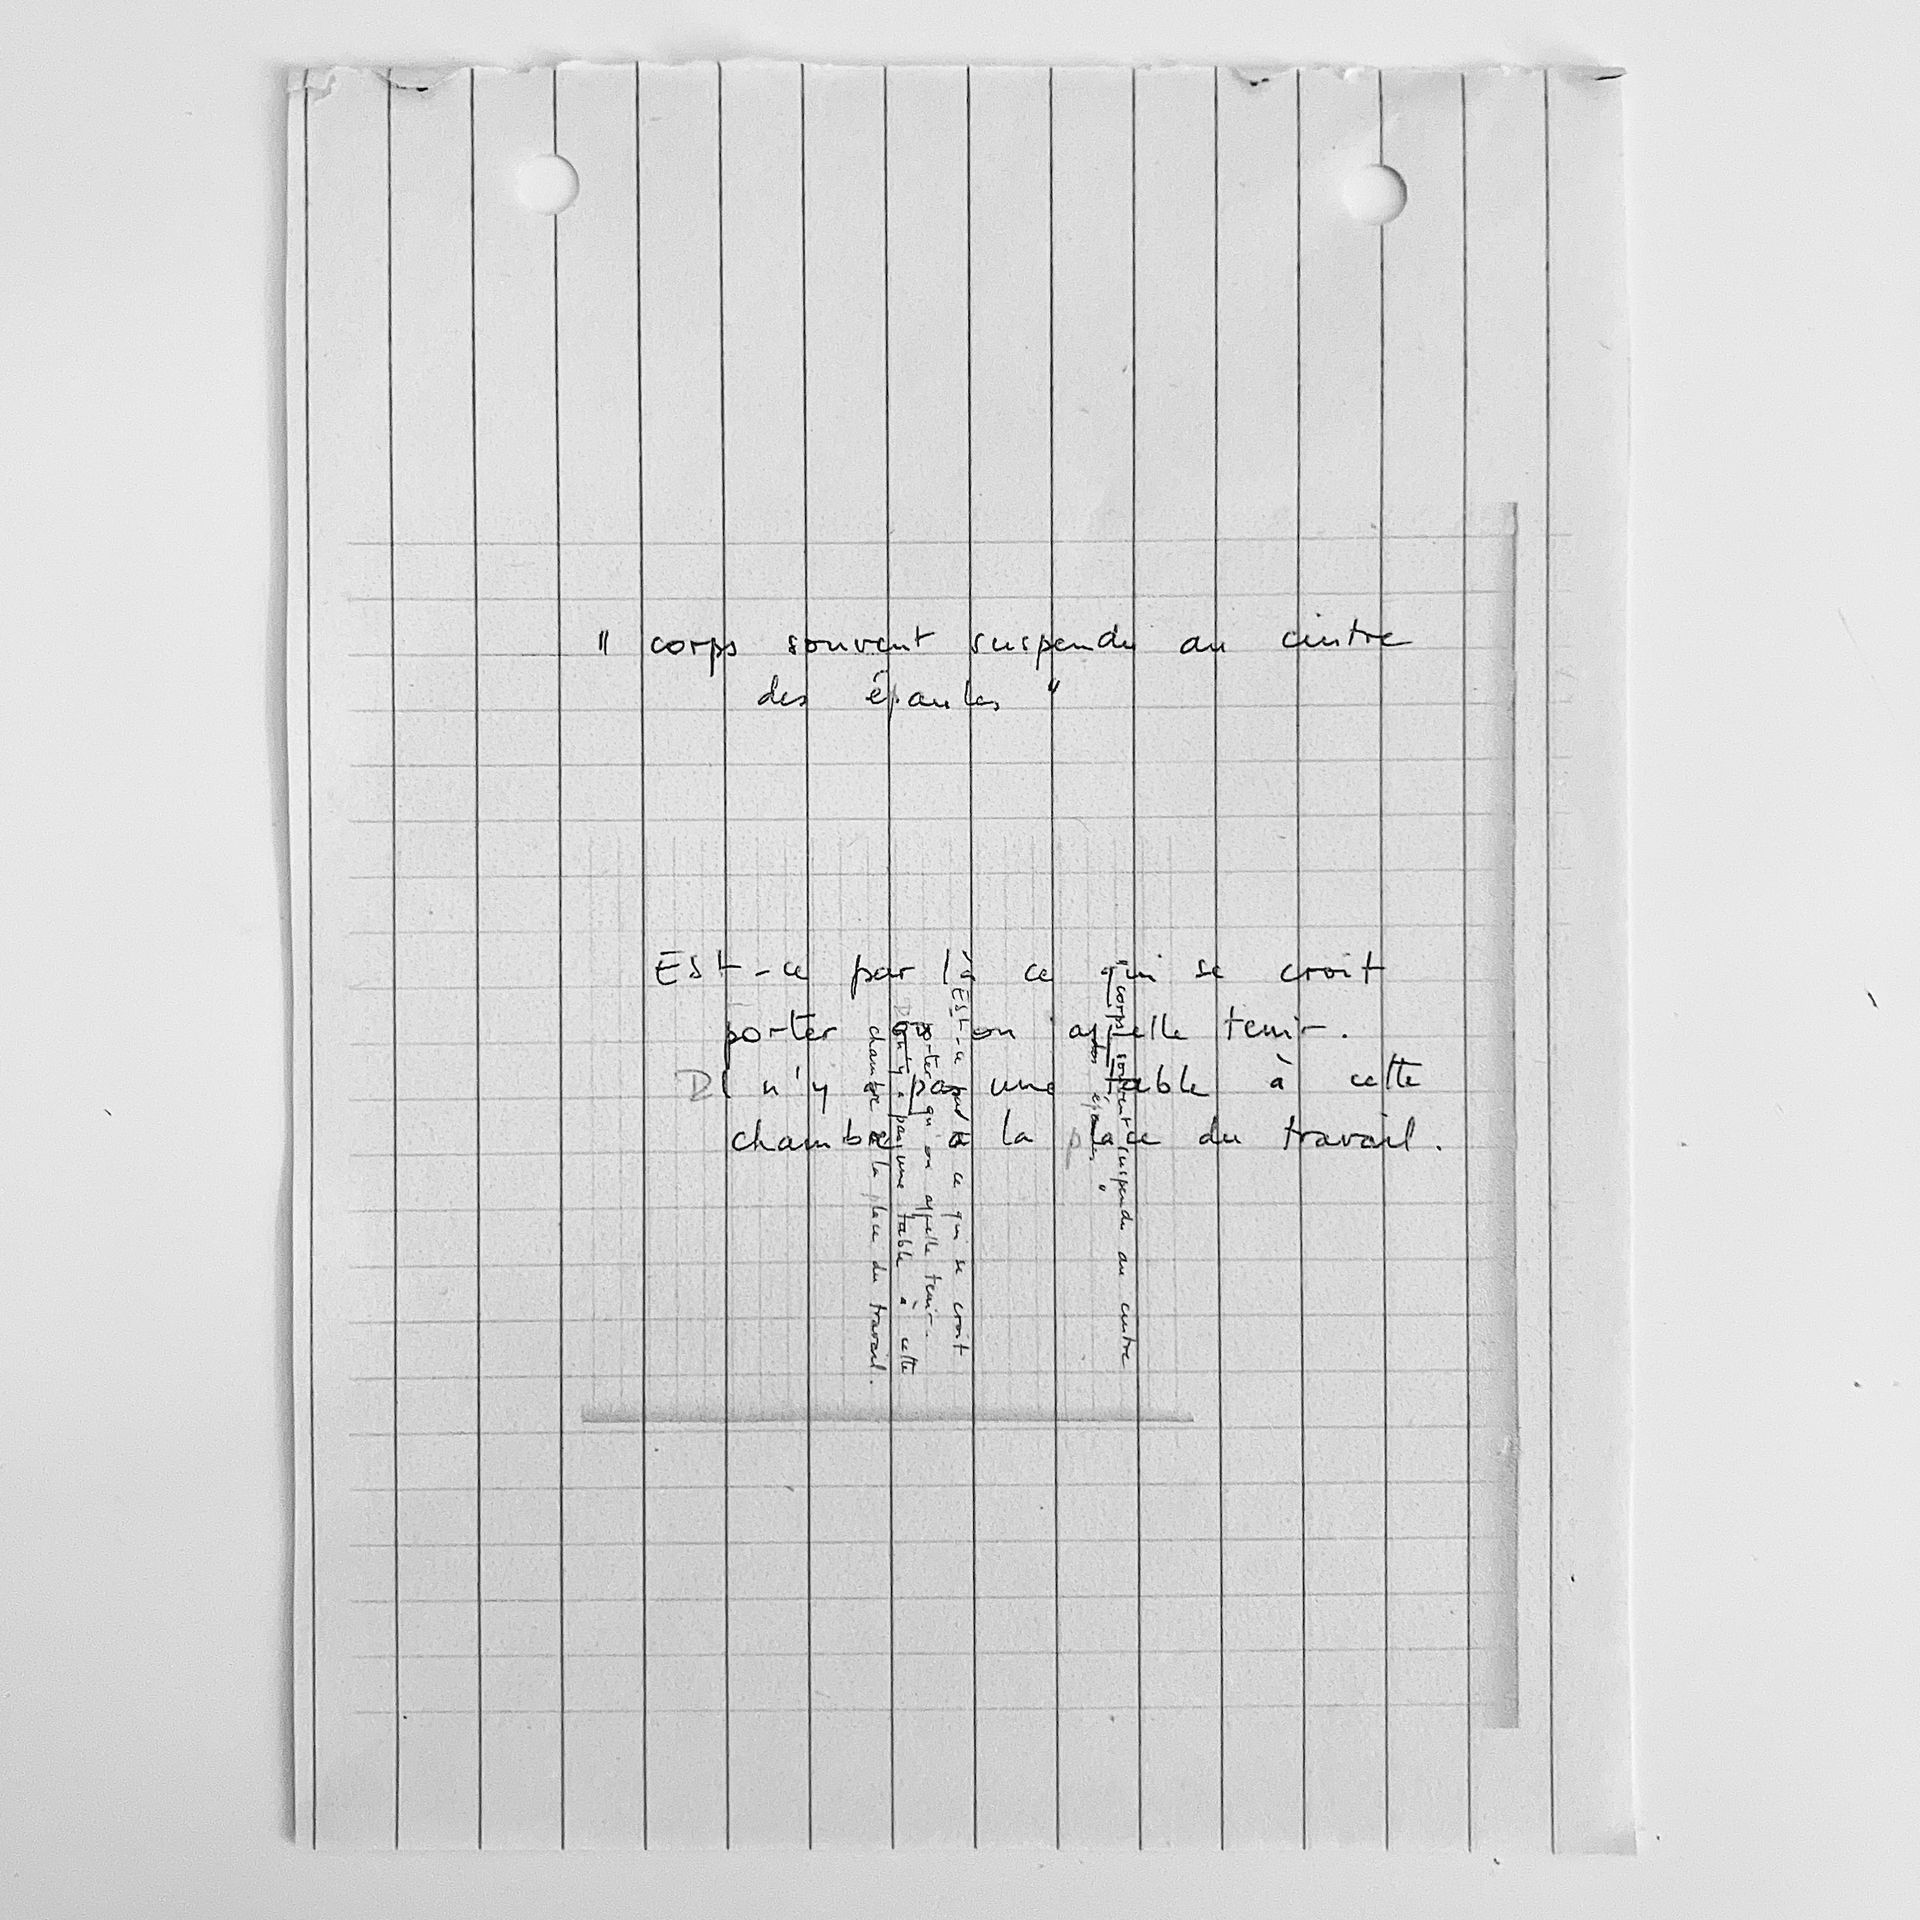 " corps souvent suspendu au cintre
des épaules "
Est-ce par là ce qui se croit
porter qu'on appelle tenir.
Il n'y a pas une table à cette
chambre à la place du travail.
" corps souvent suspendu au cintre
des épaules "
Est-ce par là ce qui se croit
porter qu'on appelle tenir.
Il n'y a pas une table à cette
chambre à la place du travail.